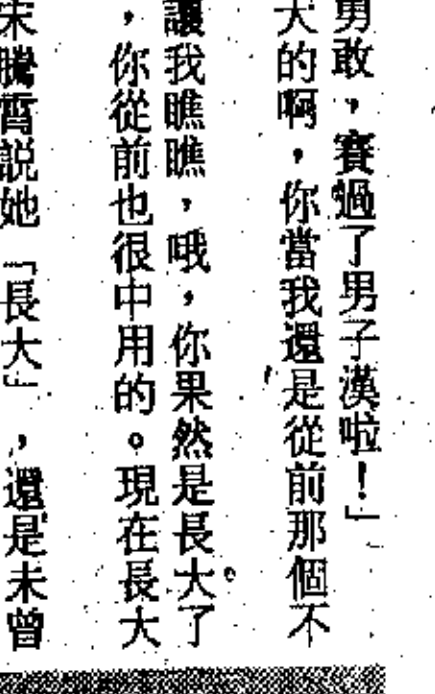 勇敢，賽過了男子漢啦！」
大的啊，你當我還是從前那個不
讓我瞧瞧，哦，你果然是長大了
，你從前也很中用的。現在長大。
末騰霄説她「長大」，還是未曾